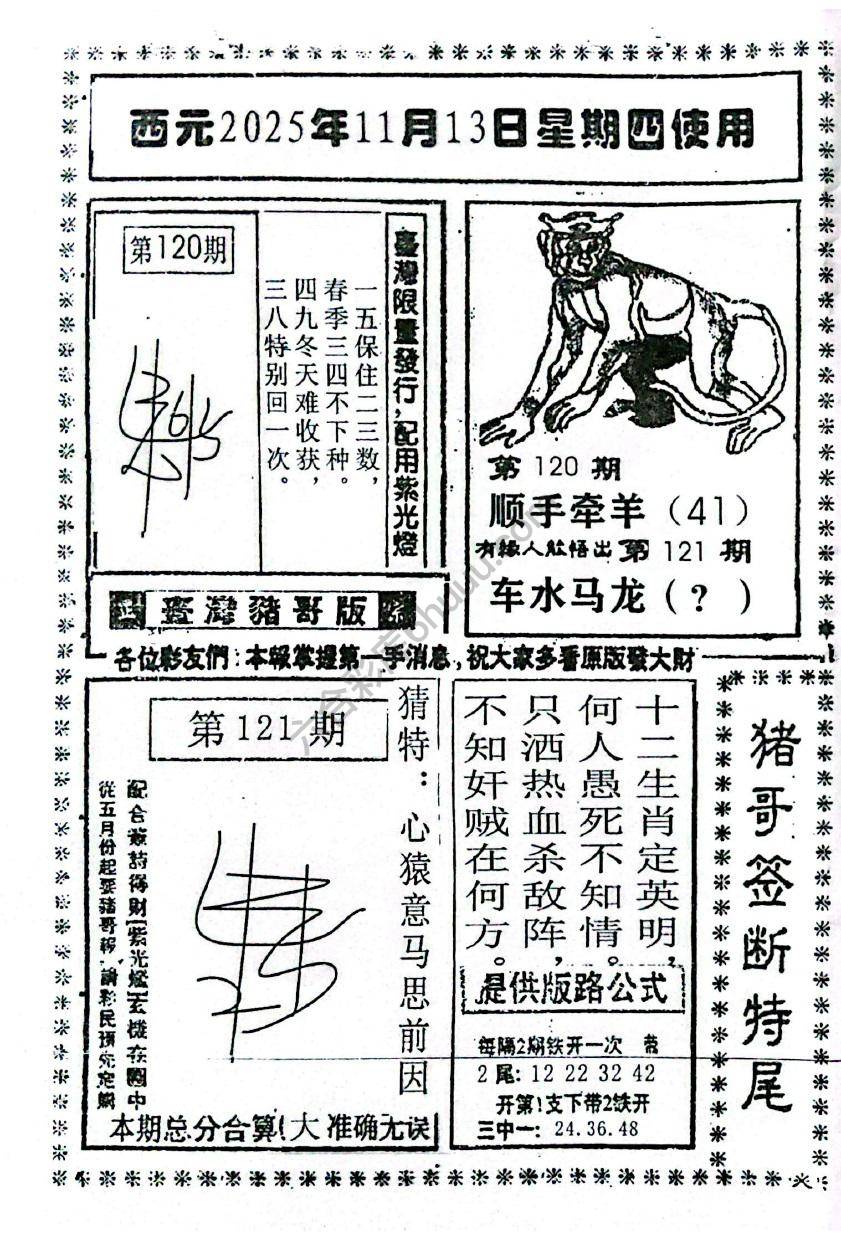 西元2025年11月13日星期四使用
第120期
一五保住二三数，
春季三四不下种。
四九冬天难收获，
三八特别回一次。
臺灣限量發行，配用紫光燈
第 120 期
顺手牵羊（41）
有緣人能悟出 第 121 期
车水马龙（？）
臺灣豬哥版
各位彩友們：本報掌握第一手消息，祝大家多看原版發大財
第 121 期
猜特：心猿意马思前因
配合簽詩得財（紫光燈）玄機在圖中
從五月份起要豬哥報，請彩民預先定購
本期总分合算（大 准确无误
十二生肖定英明，
何人愚死不知情。
只洒热血杀敌阵，
不知奸贼在何方。
提供版路公式
每隔2期铁开一次
2 尾：12 22 32 42
开第1支下带2铁开
三中一：24.36.48
猪哥签断特尾
六合彩库ohuuu.com